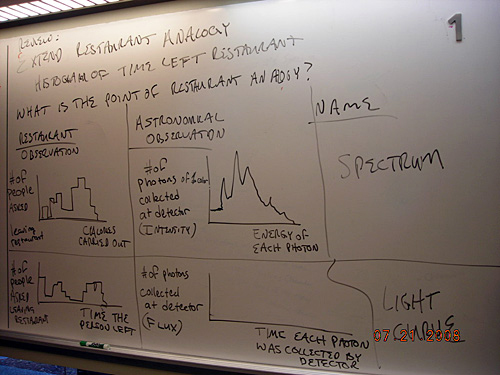 REVIEW:
EXTEND RESTAURANT ANALOGY
HISTOGRAM OF TIME LEFT RESTAURANT
WHAT IS THE POINT OF RESTAURANT ANALOGY?
1
RESTAURANT
OBSERVATION
ASTRONOMICAL
OBSERVATION
NAME
# of
people
ASKED
leaving
restaurant
CALORIES
CARRIED OUT
# of
photons of
collected
at detector
(INTENSITY)
ENERGY OF
EACH PHOTON
SPECTRUM
# of
people
ASKED
LEAVING
RESTAURANT
TIME THE
PERSON LEFT
# of photons
collected
at detector
(FLUX)
TIME EACH PHOTON
WAS COLLECTED BY
DETECTOR
LIGHT
CURVE
07.21.2008